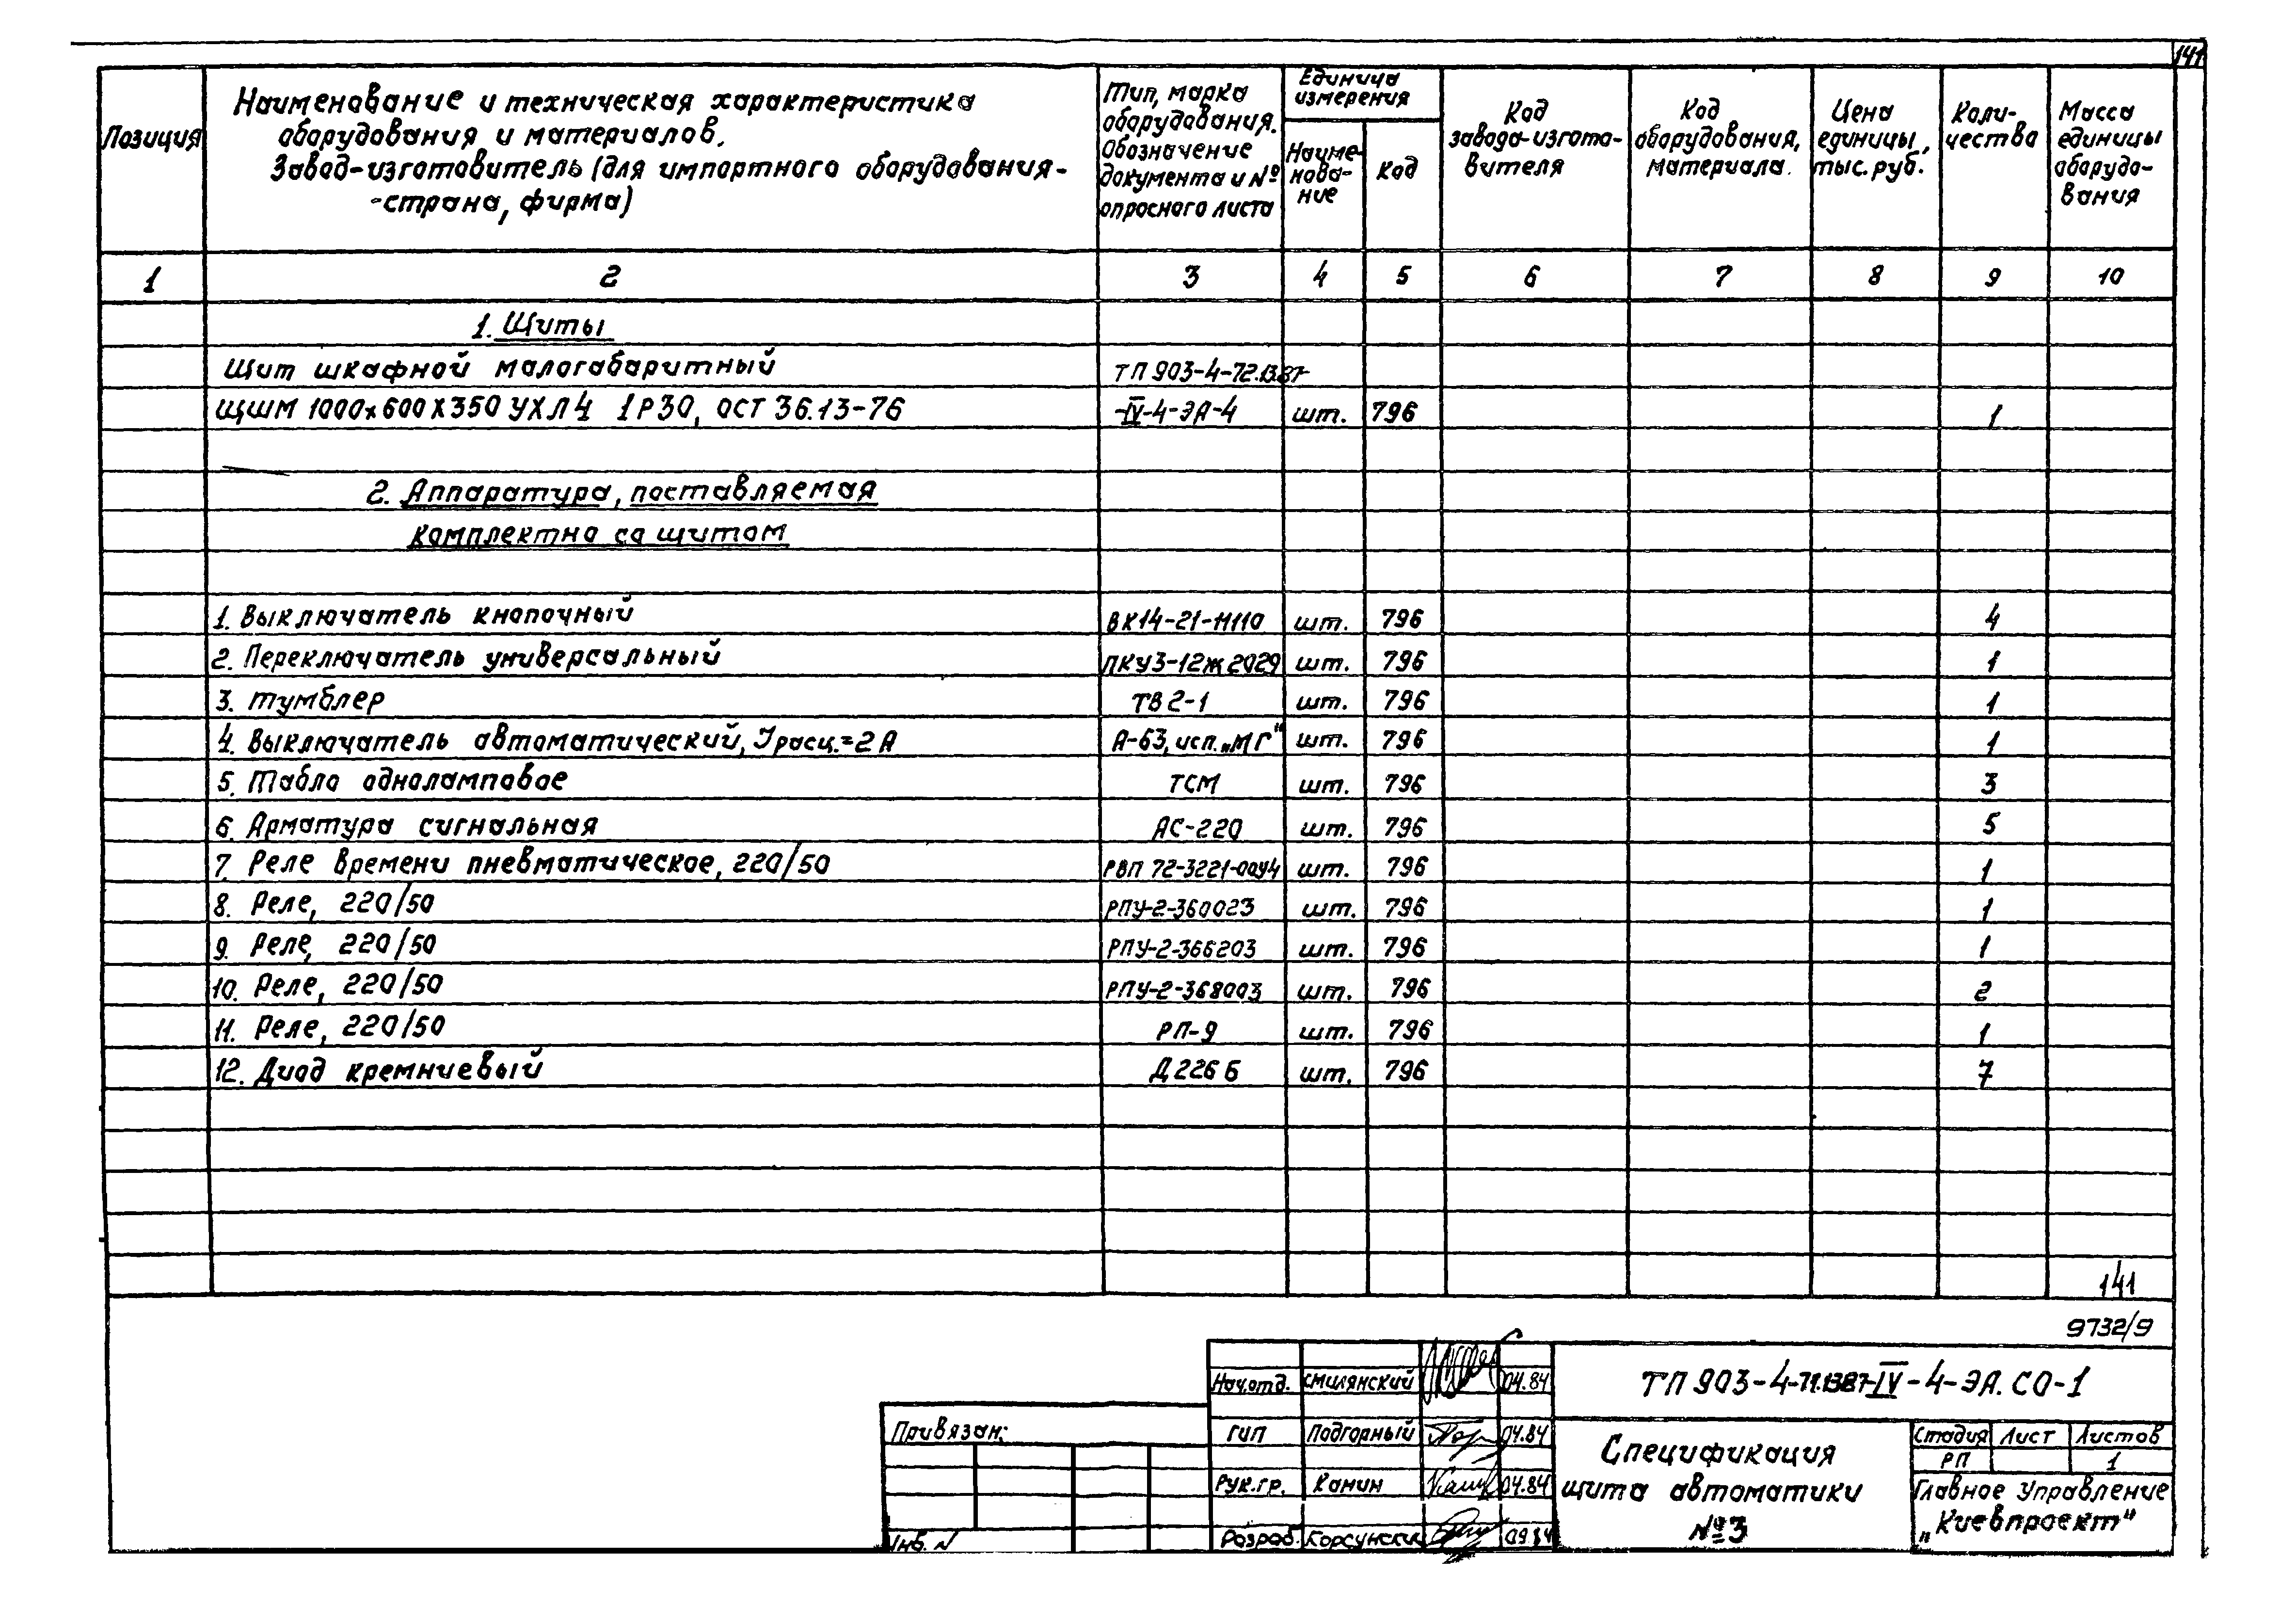 141
Позиция
Наименование и техническая характеристика
оборудования и материалов.
Завод-изготовитель (для импортного оборудования-
-страна, фирма)
Тип, марка
оборудования.
Обозначение
документа и №
опросного листа
Единица
измерения
Наиме-
нова-
ние
Код
Код
завода-изгото-
вителя
Код
оборудования,
материала.
Цена
единицы,
тыс. руб.
Коли-
чества
Масса
единицы
оборудо-
вания
1 2 3 4 5 6 7 8 9 10
1. Щиты
Щит шкафной малогабаритный ТП 903-4-72.13.87-
ЩШМ 1000х600х350 УХЛ4 1Р30, ОСТ 36.13-76 -IV-4-ЭА-4 шт. 796 1
2. Аппаратура, поставляемая
комплектно со щитом
1. Выключатель кнопочный ВК14-21-11110 шт. 796 4
2. Переключатель универсальный ПКУ3-12ж2029 шт. 796 1
3. Тумблер ТВ2-1 шт. 796 1
4. Выключатель автоматический, Jрасц.=2А А-63, исп. „МГ“ шт. 796 1
5. Табло одноламповое ТСМ шт. 796 3
6. Арматура сигнальная АС-220 шт. 796 5
7. Реле времени пневматическое, 220/50 РВП 72-3221-00У4 шт. 796 1
8. Реле, 220/50 РПУ-2-360023 шт. 796 1
9. Реле, 220/50 РПУ-2-366203 шт. 796 1
10. Реле, 220/50 РПУ-2-368003 шт. 796 2
11. Реле, 220/50 РП-9 шт. 796 1
12. Диод кремниевый Д226Б шт. 796 7
141
9732/9
Привязан:
Инв. N
Нач.отд. Смилянский 04.84
ГИП Подгорный 04.84
Рук.гр. Камин 04.84
Разраб. Корсунски 09.84
ТП 903-4- -IV-4-ЭА.СО-1
Спецификация
щита автоматики
№3
Стадия Лист Листов
РП 1
Главное Управление
„Киевпроект“